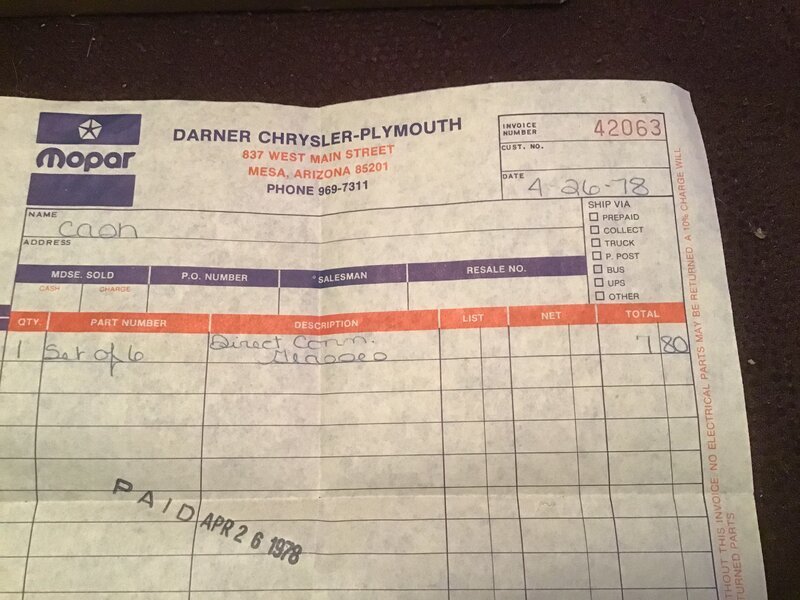 Mopar
DARNER CHRYSLER-PLYMOUTH
837 WEST MAIN STREET
MESA, ARIZONA 85201
PHONE 969-7311
INVOICE NUMBER 42063
CUST. NO.
DATE 4-26-78
NAME Cash
ADDRESS
SHIP VIA
PREPAID
COLLECT
TRUCK
P. POST
BUS
UPS
OTHER
MDSE. SOLD P.O. NUMBER SALESMAN RESALE NO.
CASH CHARGE
QTY. PART NUMBER DESCRIPTION LIST NET TOTAL
1 Set of 6 Direct Conn. 7 80
Glasses
PAID APR 26 1978
THOUT THIS INVOICE: NO ELECTRICAL PARTS MAY BE RETURNED. A 10% CHARGE WILL
TURNED PARTS